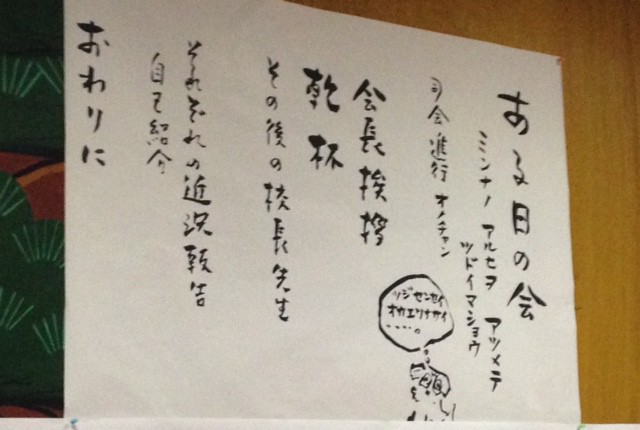 ある日の会
ミンナノ アルセヲ アツメテ
ツドイマショウ
司会進行 オノチャン
会長挨拶
乾杯
その後の校長先生
それぞれの近況報告
自己紹介
おわりに
ツジセンセイ
オカエリナサイ
・・・・。